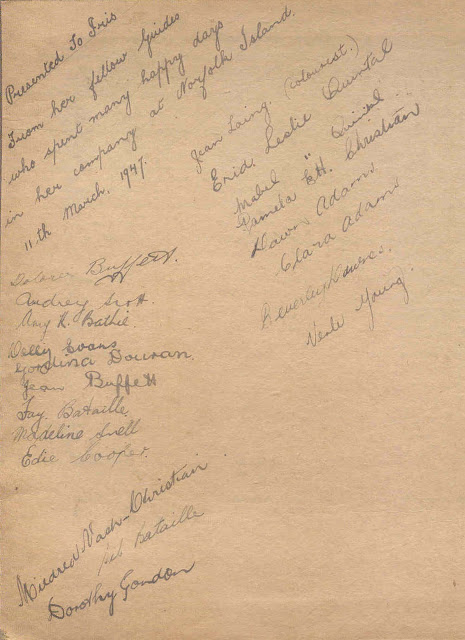 Presented To Iris
From her fellow Guides
who spent many happy days
in her company at Norfolk Island.
11th March, 1947.
Jean Laing. (colourist.)
Enid Leslie Quintal
Mabel " Quintal
Pamela E.H. Christian
Dawn Adams
Clara Adams
Beverley
Nesle Young.
Dolores Buffett.
Audrey Scott.
Amy R. Bathie
Evans
Gordina Douran.
Jean Buffett
Fay Bataille.
Madeline Snell
Edie Cooper.
Mildred Nash-Christian
Bataille
Dorothy Gordon